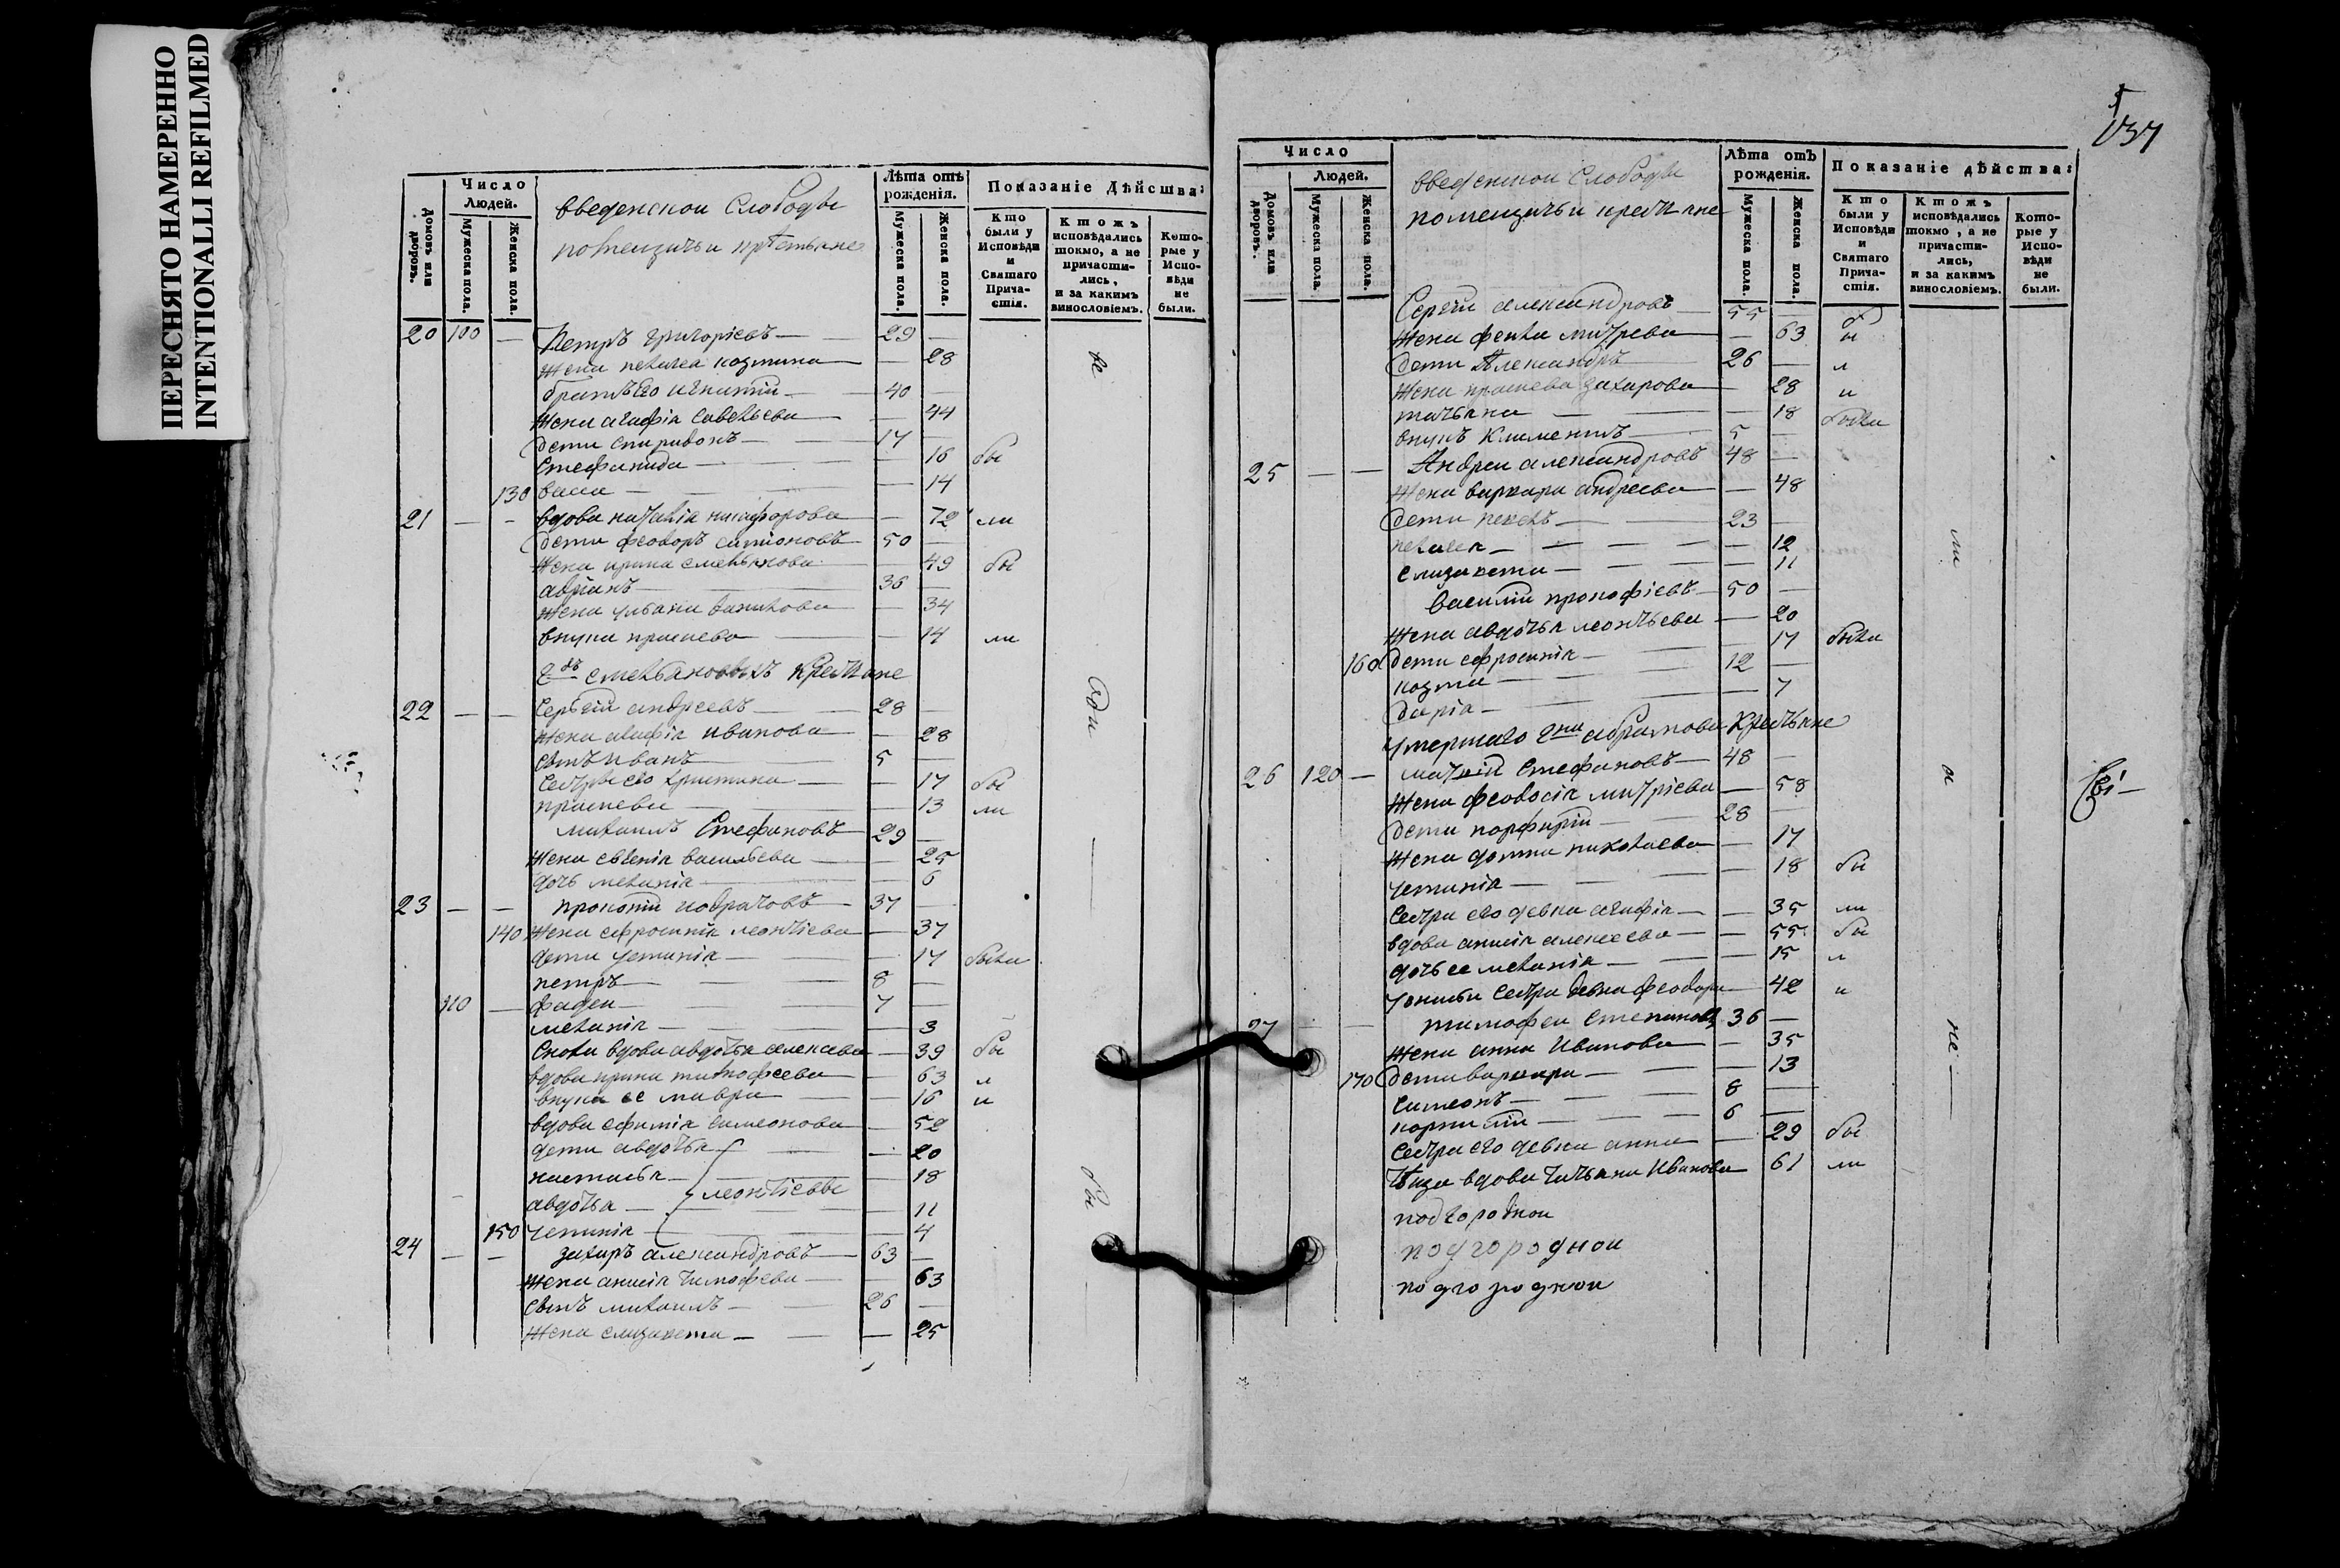 ПЕРЕСНЯТО НАМЕРЕННО
INTENTIONALLI REFILMED
Число
Людей.
Домовъ или дворовъ.
Мужеска пола.
Женска пола.
введенскои Слободы
помещичьи крестьяне
Лѣта отъ рожденія.
Мужеска пола.
Женска пола.
Показаніе Дѣйства:
Кто были у Исповѣди и Святаго Прича- стія.
Ктожъ исповѣдались токмо, а не причасти- лись, и за какимъ винословіемъ.
Кото- рые у Испо- вѣди не были.
20 100 — Петръ григорієвъ — 29 —
жена пелагеа козмина — 28
братъ его игнатіи — 40 —
жена агафіа савельева — 44
дети спиридонъ — 17 —
Стефанида — 16 бы
130 васса — 14
21 — - вдова наталіа никифорова — 72 ли
дети феодоръ симионовъ 50 —
жена ирина емельянова — 49 бы
адріанъ — 36 —
жена ульана — 34
внука прасковa — 14 ли
крестьяне
22 — — Сергіи андреевъ — 28 —
жена агафіа иванова — 28
сынъ иванъ — 5 —
Сестры его христина — 17 бы
прасковea — 13 ли
михаилъ Стефановъ 29 —
жена евгеніа васильева — 25
дочь меланіа — 6
23 — — прокопіи кодратовъ 37 —
140 жена ефросиніа леонтієва — 37
дети устиніа — 17 были
петръ — 8 —
110 — фадеи — 7 —
меланіа — 3
Сноха вдова авдотьа алексеева — 39 бы
вдова ирина тимофеева — 63 л
внука ее мавра — 16 и
вдова ефиміа симеонова — 52
дети авдотьа — 20
настасьа — леонтієвы — 18
авдотьа — 11
150 устиніа — 4
24 — - захаръ александровъ — 63 —
жена анисіа тимофеева — 63
сынъ михаилъ — 26 —
жена елизавета — 25
137
Число
Людей.
Домовъ или дворовъ.
Мужеска пола.
Женска пола.
введенскои Слободы
помещичьи крестьяне
Лѣта отъ рожденія.
Мужеска пола.
Женска пола.
Показаніе дѣйства:
Кто были у Исповѣди и Святаго Прича- стія.
Ктожъ исповѣдались токмо, а не причасти- лись, и за какимъ винословіемъ.
Кото- рые у Испо- вѣди не были.
Сергіи александровъ 55 —
жена фекла митрева — 63 бы
дети Александръ 26 — л
жена прасковea захарова — 28 и
татьяна — 18 была
внукъ климентъ — 5 —
25 — — Андреи александровъ 48 —
жена варвара андреева — 48
дети — 23 —
пелагеа — 12
елизавета — 11
василіи прокофієвъ 50 —
жена авдотьа леонтьева — 20
160 дети ефросиніа — 17 была
козма — 12 —
даріа — 7
умершаго абрамова крестьяне
26 120 — Стефановъ — 48 —
жена феодосіа митрієва — 58
дети порфиріи — 28 —
жена домна николаева — 17
устиніа — 18 бы
Сестра его девка агафіа — 35 ли
вдова анисіа алексеева — 55 бы
дочь ее меланіа — 15 л
Сестра девка феодора — 42 и
27 — — тимофеи Степановъ 36 —
жена анна Иванова — 35
170 дети варвара — 13
симеонъ — 8 —
6 —
Сестра его девка анна — 29 бы
вдова татьяна Иванова 61 ли
подгороднои
подгороднои
подгороднои